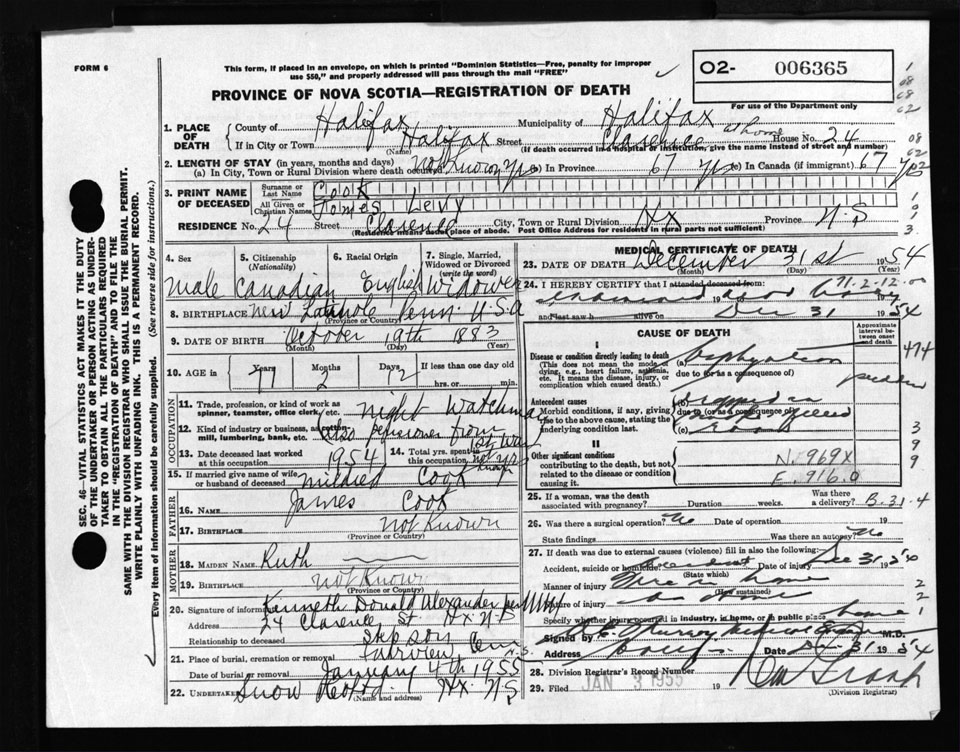 FORM 6
This form, if placed in an envelope, on which is printed "Dominion Statistics—Free, penalty for improper
use $50," and properly addressed will pass through the mail "FREE"
O2- 006365
PROVINCE OF NOVA SCOTIA—REGISTRATION OF DEATH
For use of the Department only
1. PLACE OF DEATH
County of Halifax Municipality of Halifax
If in City or Town Halifax Street Clarence at home House No. 24
(Name) (If death occurred in a hospital or institution, give the name instead of street and number)
2. LENGTH OF STAY (in years, months and days)
(a) In City, Town or Rural Division where death occurred not Known yrs (b) In Province 67 yrs (c) In Canada (if immigrant) 67 yrs
3. PRINT NAME OF DECEASED
Surname or Last Name Cook
All Given or Christian Names James Levy
RESIDENCE No. 24 Street Clarence City, Town or Rural Division Hx Province N.S
(Residence means usual place of abode. Post Office Address for residents in rural parts not sufficient)
SEC. 46—VITAL STATISTICS ACT MAKES IT THE DUTY
OF THE UNDERTAKER OR PERSON ACTING AS UNDER-
TAKER TO OBTAIN ALL THE PARTICULARS REQUIRED
IN THE "REGISTRATION OF DEATH" AND TO FILE THE
SAME WITH THE DIVISION REGISTRAR WHO SHALL ISSUE THE BURIAL PERMIT.
WRITE PLAINLY WITH UNFADING INK. THIS IS A PERMANENT RECORD.
Every item of information should be carefully supplied. (See reverse side for instructions.)
4. Sex 5. Citizenship (Nationality) 6. Racial Origin 7. Single, Married, Widowed or Divorced (write the word)
male Canadian English Widower
8. BIRTHPLACE Penn. U.S.A
(Province or Country)
9. DATE OF BIRTH October 19th 1883
(Month) (Day) (Year)
10. AGE in Years 71 Months 2 Days 12 If less than one day old
hrs. or min.
OCCUPATION
11. Trade, profession, or kind of work as
spinner, teamster, office clerk, etc. night Watchman
12. Kind of industry or business, as cotton-
mill, lumbering, bank, etc. also pensioner from 1st War
13. Date deceased last worked
at this occupation 1954
14. Total yrs. spent in
this occupation not Known yrs
15. If married give name of wife
or husband of deceased mildred Cook
FATHER
16. NAME James Cook
17. BIRTHPLACE not Known
(Province or Country)
MOTHER
18. MAIDEN NAME Ruth
19. BIRTHPLACE not Known
(Province or Country)
20. Signature of informant Kenneth Donald Alexander
Address 24 Clarence St. Hx. N.S
Relationship to deceased Stepson
21. Place of burial, cremation or removal Fairview Cem N.S.
Date of burial or removal January 4th 1955
22. UNDERTAKER Snow Hx. N.S
(Name and address)
MEDICAL CERTIFICATE OF DEATH
23. DATE OF DEATH December 31st 1954
(Month) (Day) (Year)
24. I HEREBY CERTIFY that I attended deceased from:
19
and last saw h alive on Dec 31 1954
CAUSE OF DEATH
Approximate interval between onset and death
I
Disease or condition directly leading to death
(This does not mean the mode of
dying, e.g., heart failure, asthenia,
etc. It means the disease, injury, or
complication which caused death.)
(a) asphyxiation
due to (or as a consequence of)
Antecedent causes
Morbid conditions, if any, giving
rise to the above cause, stating the
underlying condition last.
(b) trapped in
due to (or as a consequence of)
(c) room
II
Other significant conditions
contributing to the death, but not
related to the disease or condition
causing it.
N. 969X
E. 916.0
25. If a woman, was the death
associated with pregnancy? Duration weeks. Was there a delivery? B.31.4
26. Was there a surgical operation? No Date of operation 19
State findings Was there an autopsy? No
27. If death was due to external causes (violence) fill in also the following:
Accident, suicide or homicide? accident Date of injury Dec 31 1954
(State which)
Manner of injury Fire in home
(How sustained)
Nature of injury
Specify whether injury occurred in industry, in home, or in public place home
Signed by M.D.
Address Halifax Date Dec 31 1954
28. Division Registrar's Record Number
29. Filed JAN 3 1955 19
(Division Registrar)